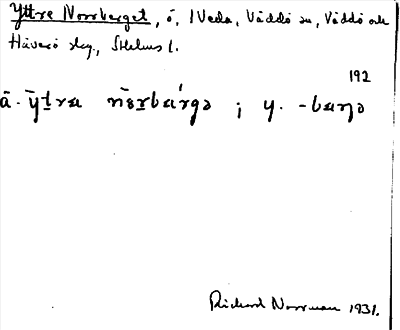 Yttre Norrberget, ö, i Veda, Väddö sn, Väddö och
Häverö skg, Sthlms l.
192
ā. ȳtra nörbärgə ; y. -baŋə
Richard Norrman 1931.